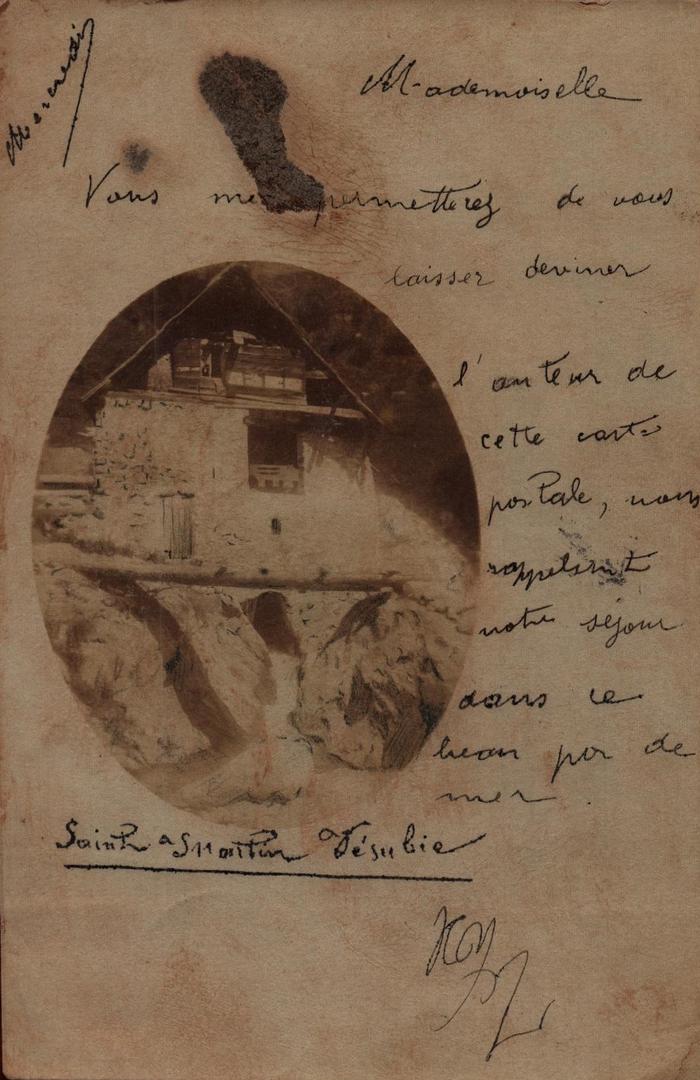 Mercredi
Mademoiselle
Vous me permetterez de vous
laisser deviner
l'auteur de
cette carte
postale, vous
rappelant
notre séjour
dans ce
beau por de
mer.
Saint Martin Vésubie